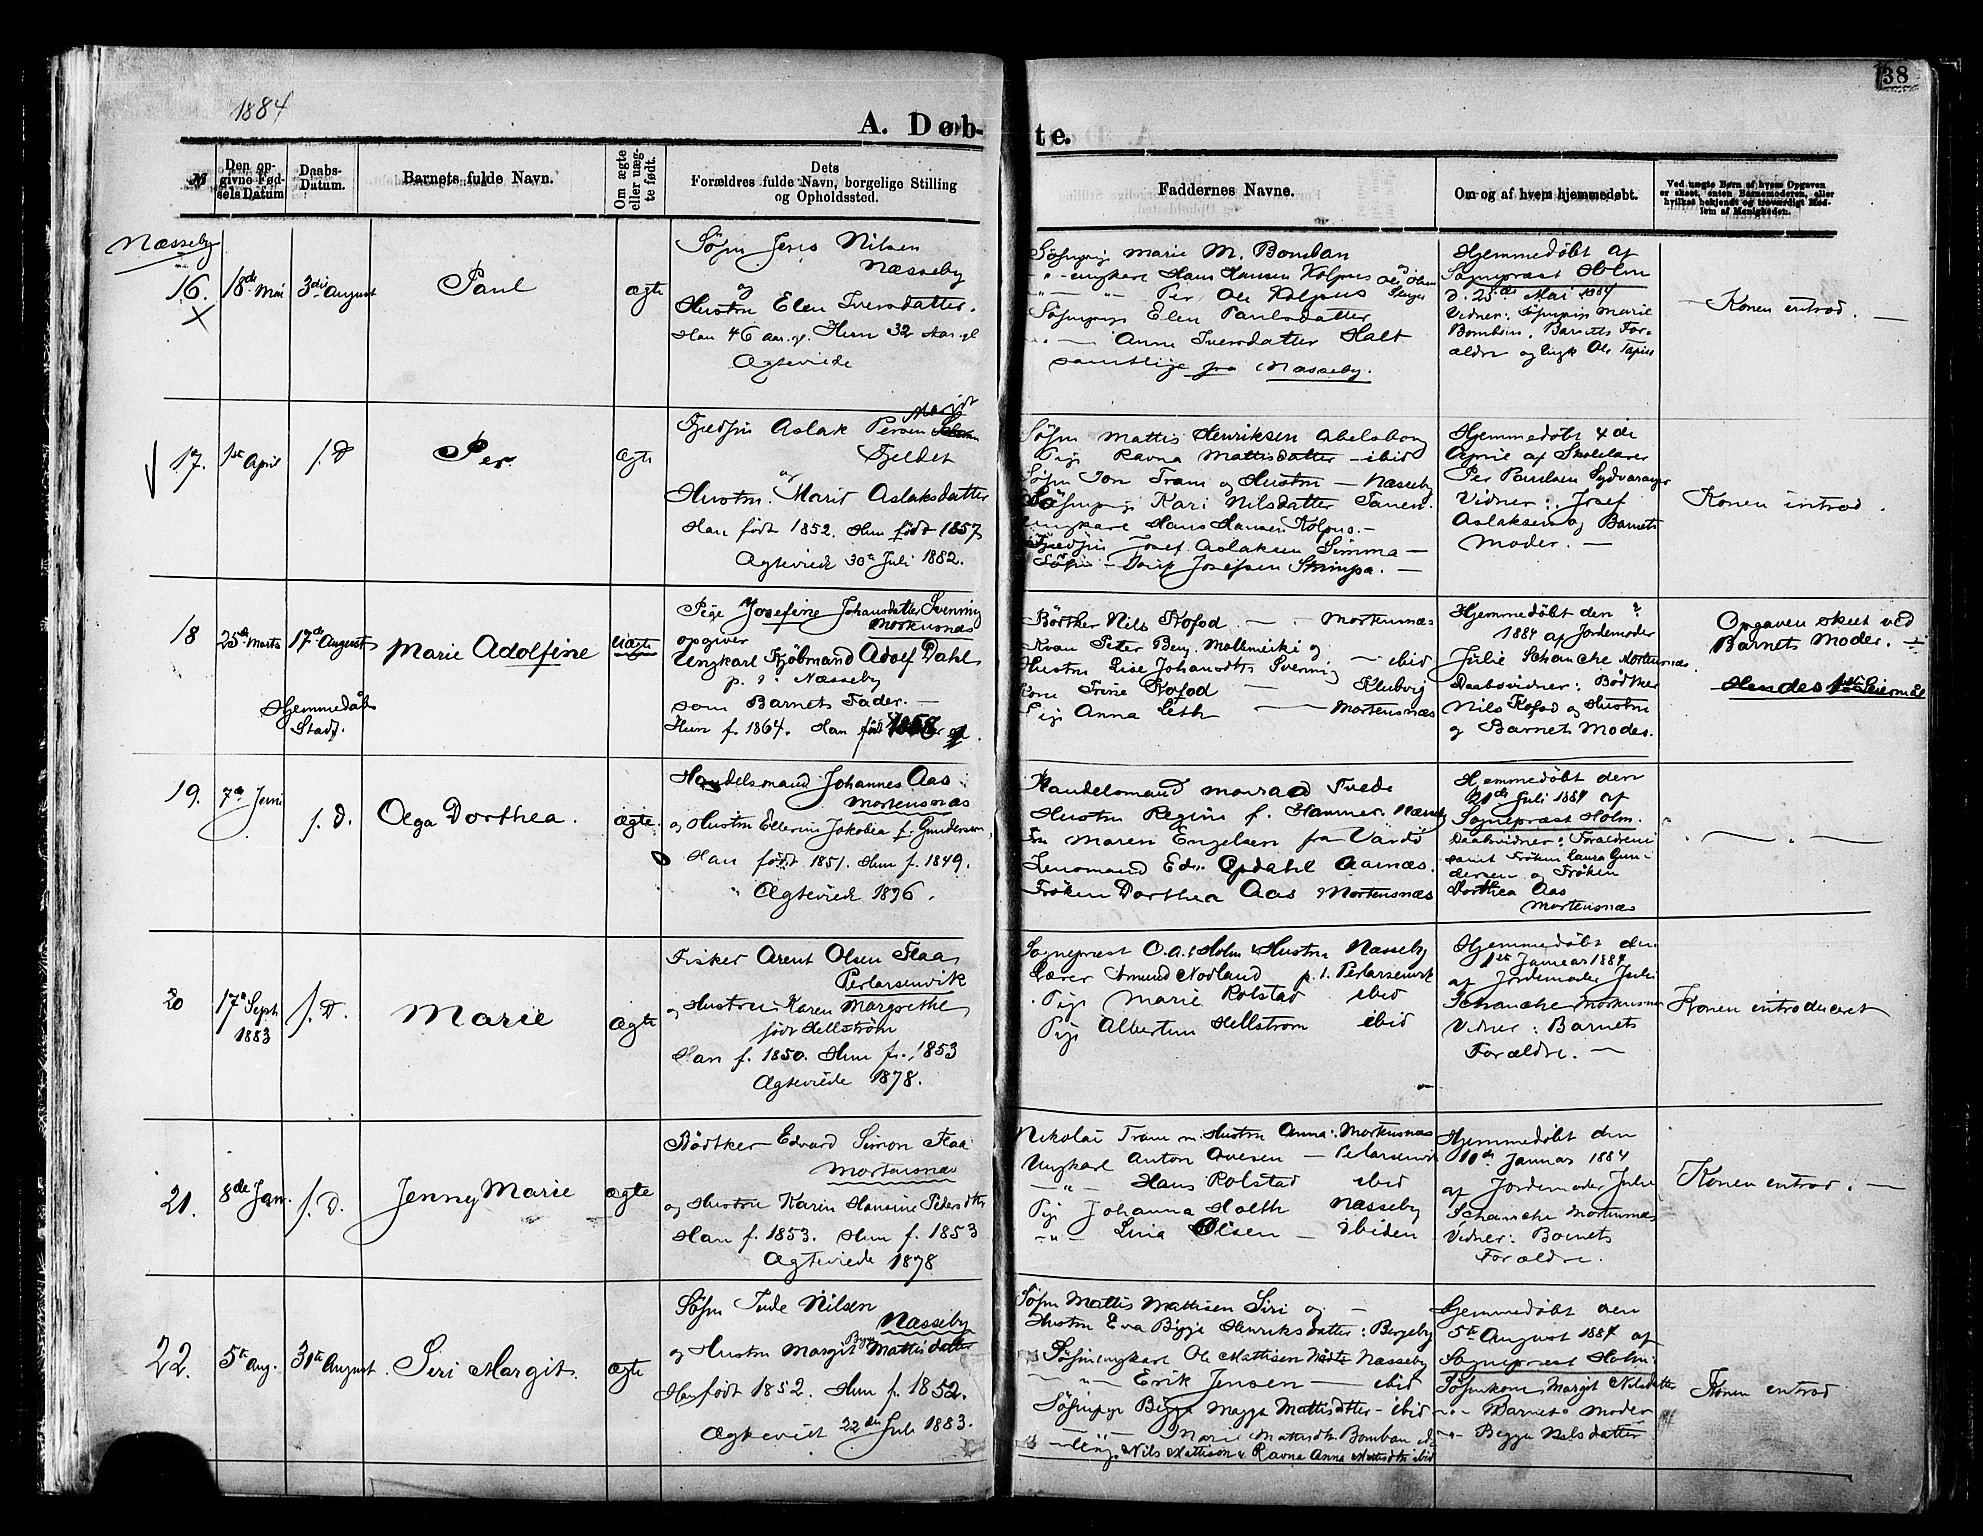 1884
38
A. Døb-
te.
№
Den op-
givne Fød-
sels Datum
Daabs-
Datum.
Barnets fulde Navn.
Om ægte
eller uæg-
te født.
Dets
Forældres fulde Navn, borgelige Stilling
og Opholdssted.
Faddernes Navne.
Om og af hvem hjemmedøbt.
Ved uægte Børn af hvem Opgaven
er skeet, enten Barnemoderen, eller
hvilket bekjendt og troværdigt Med-
lem af Menigheden.
Næsseby
16.
18de Mai
3die August
Paul
ægte
Søfin Jens Nilsen
Næsseby
og
Hustru Elen Iversdatter.
Han 46 Aar gl. Hun 32 Aar gl
Ægteviede
Søfinpige Marie M. Bomban
ungkarl Hans Hansen Kolpus
Per Ole Kolpus
Søfinpige Elen Paulsdatter
Anne Iversdatter Halt
samtlige fra Næsseby.
Hjemmedøbt af
Sognepræst Holm
d. 25de Mai 1884
Vidner: Søfinpige Marie
Bomban, Barnets For-
ældre og Ungk Ole
Konen introd.
17.
1ste April
s. D
Per.
ægte
Fjeldfin Aslak Persen
Fjeldet
og
Hustru Marit Aslaksdatter
Han født 1852. Hun født 1857
Ægteviede 30te Juli 1882.
Søfin Mattis Henriksen Abelsborg
Pige Ravna Mattisdatter - ibid
Søfin Jon Tram og Hustru - Næsseby
Søfinpige Kari Nilsdatter Tanen
Ungkarl Hans Hansen Kolpus. -
Fjeldfin Josef Aslaksen Simma -
Søfin - Josefsen
Hjemmedøbt 4de
April af Skolelærer
Per Paulsen Sydvaranger
Vidner: Josef
Aslaksen og Barnets
Moder. -
Konen introd.
18
25de Marts
17de August
Hjemmedåb
Stadf.
Marie Adolfine
Uægte
Pige Josefine Johansdatter Svenning
Mortensnæs
opgiver
Ungkarl Kjøbmand Adolf Dahl
p. t. Næsseby
som Barnets Fader. -
Hun f. 1864. Han født
Bødtker Nils Kofod - Mortensnæs
Kvæn Peter Benj. og
Hustru Lise Johansdtr Svenning - ibid
Kone Trine Kofod - Klubvig
Pige Anna Leth - Mortensnæs
Hjemmedøbt den ?
1884 af Jordemoder
Julie Schanche Mortensnæs.
Daabsvidner: Bødtker
Nils Kofod og Hustru
og Barnets Moder.
Opgaven skeet ved
Barnets Moder.
Hendes 1ste Leiermål
19.
7de Juni
s. D.
Olga Dorthea.
ægte.
Handelsmand Johannes Aas
Mortensnæs
og Hustru Ellerine Jakobea f. Gundersen,
Han født 1851. Hun f. 1849.
Ægteviede 1876.
Handelsmand Monrad Tvede
Hustru Regine f. Hammer. Næsseby
Fru Maren Engelsen fra Vardø
Lensmand Edv. Opdahl Aarnæs.
Frøken Dorthea Aas Mortensnæs
Hjemmedøbt den
21de Juli 1884 af
Sognepræst Holm.
Daabsvidner: Forældrene
samt Frøken Laura Gun-
dersen og Frøken
Dorthea Aas
Mortensnæs
20
17de Sept
1883
s. D.
Marie
ægte
Fisker Arent Olsen Flaa
Perlarsenvik
og Hustru Karen Margrethe
født Hellstrøm
Han f. 1850. Hun f. 1853
Ægteviede 1878.
Sognepræst O. A. Holm & Hustru Næsseby
Lærer Amund Nodland p. t. Perlarsenvik
Pige Marie Rolstad ibid
Pige Albertine Hellstrøm ibid
Hjemmedøbt den
1ste Januar 1884
af Jordemoder Julie
Schanche Mortensnæs
Vidner: Barnets
Forældre. -
Konen introduceret
21.
8de Jan.
s. D.
Jenny Marie
ægte
Bødtker Edvard Simon Flaa
Mortensnæs
og Hustru Karen Hansine Pedersdtr
Han f. 1853. Hun f. 1853
Ægteviede 1878
Nikolai Tram m. Hustru Anna: Mortensnæs
Ungkarl Anton Ovesen - Perlarsenvik
Hans Rolstad ibid
Pige Johanna Holth Næsseby
Lina Olsen - ibiden
Hjemmedøbt den
10de Januar 1884
af Jordemoder Julie
Schanche Mortensnæs
Vidner: Barnets
Forældre.
Konen introd. -
22.
5te Aug.
31te August.
Siri Margit.
ægte
Søfin Jude Nilsen
Næsseby
og Hustru Margit Bigga Mattisdatter
Han født 1852. Hun f. 1852.
Ægteviet 22de Juli 1883.
Søfin Mattis Mattisen Siri og -
Hustru Eva Bigga Henriksdatter: Bergeby
Søfinungkarl Ole Mattisen Næsseby
Erik Jensen - ibid
Søfinpige Bigga Magga Mattisdatter - ibid
Marie Mattisdtr Bomban
Nils Mattisen & Ravna Anna Mattisdtr ibid
Hjemmedøbt den
5te August 1884 af
Sognepræst Holm:
Søfinkone Margit Nilsdatter
Barnets Moder
Bigga Nilsdatter
Konen introd